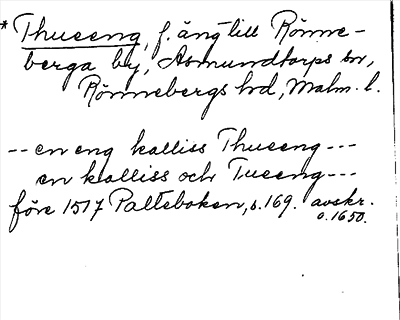 * Thuseng, f. äng till Rönne-
berga by, Asmundtorps sn,
Rönnebergs hd, Malm. l.
-- en eng kalliss Thuseng ---
en kalliss och Tueeng ---
före 1517 Palteboken, s. 169. avskr.
o. 1650.